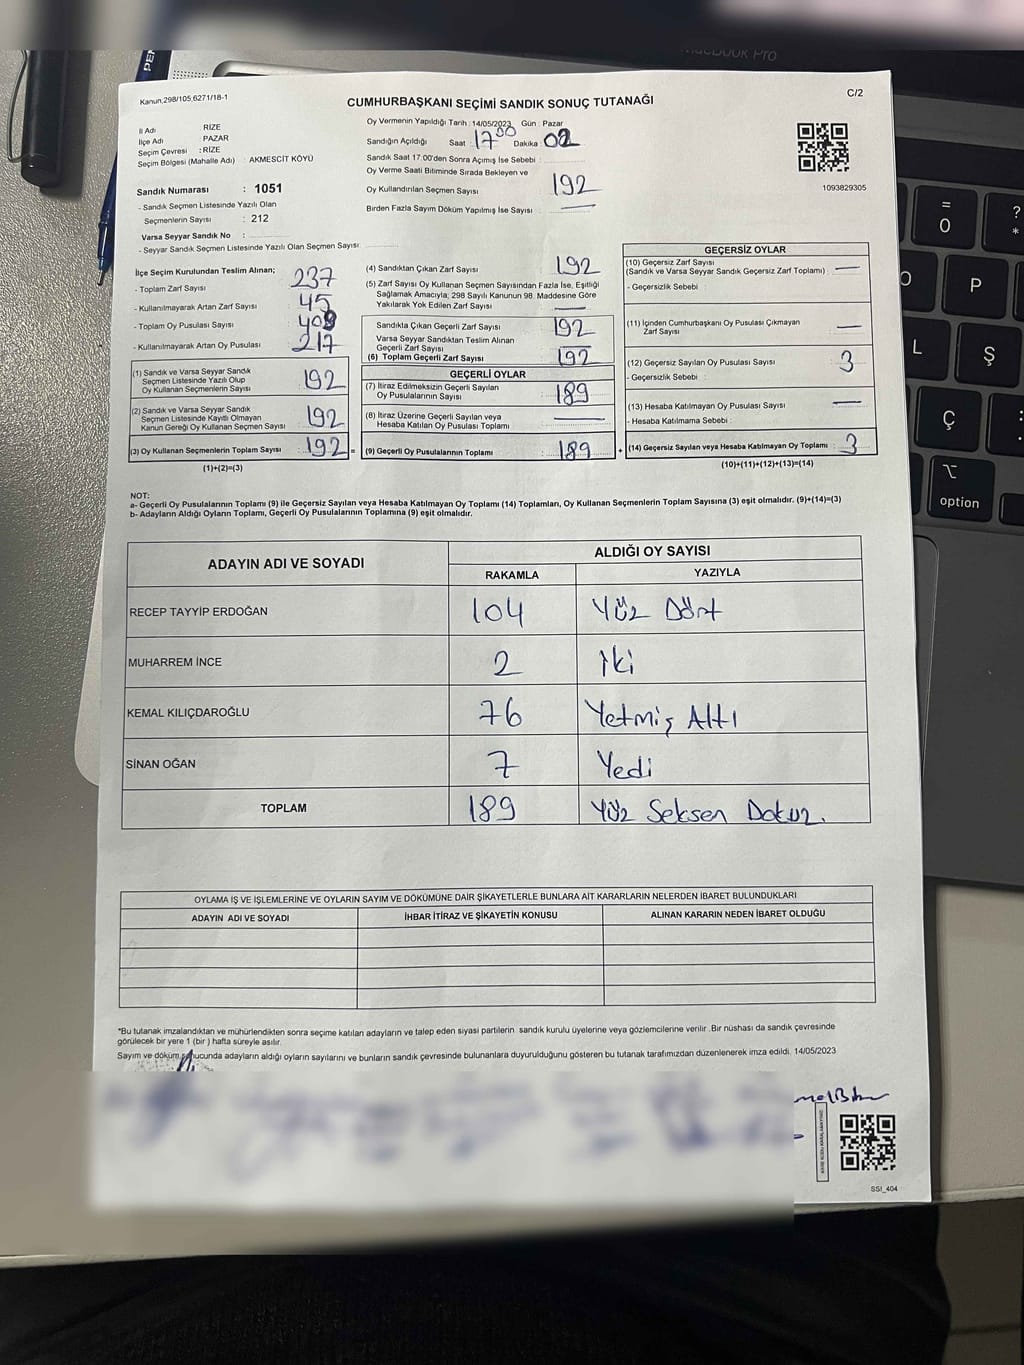 MacBook Pro
Kanun,298/105;6271/18-1
C/2
CUMHURBAŞKANI SEÇİMİ SANDIK SONUÇ TUTANAĞI
İl Adı RİZE
İlçe Adı PAZAR
Seçim Çevresi : RİZE
Seçim Bölgesi (Mahalle Adı) : AKMESCİT KÖYÜ
Sandık Numarası : 1051
- Sandık Seçmen Listesinde Yazılı Olan
Seçmenlerin Sayısı : 212
Varsa Seyyar Sandık No :
- Seyyar Sandık Seçmen Listesinde Yazılı Olan Seçmen Sayısı
Oy Vermenin Yapıldığı Tarih : 14/05/2023 Gün : Pazar
Sandığın Açıldığı Saat : 17 00 Dakika : 02
Sandık Saat 17.00'den Sonra Açımış İse Sebebi :
Oy Verme Saati Bitiminde Sırada Bekleyen ve
Oy Kullandırılan Seçmen Sayısı 192
Birden Fazla Sayım Döküm Yapılmış İse Sayısı : —
1093829305
İlçe Seçim Kurulundan Teslim Alınan;
- Toplam Zarf Sayısı 237
- Kullanılmayarak Artan Zarf Sayısı 45
- Toplam Oy Pusulası Sayısı
- Kullanılmayarak Artan Oy Pusulası 217
(1) Sandık ve Varsa Seyyar Sandık
Seçmen Listesinde Yazılı Olup
Oy Kullanan Seçmenlerin Sayısı 192
(2) Sandık ve Varsa Seyyar Sandık
Seçmen Listesinde Kayıtlı Olmayan
Kanun Gereği Oy Kullanan Seçmen Sayısı 192
(3) Oy Kullanan Seçmenlerin Toplam Sayısı : 192 =
(1)+(2)=(3)
(4) Sandıktan Çıkan Zarf Sayısı 192
(5) Zarf Sayısı Oy Kullanan Seçmen Sayısından Fazla İse, Eşitliği
Sağlamak Amacıyla; 298 Sayılı Kanunun 98. Maddesine Göre
Yakılarak Yok Edilen Zarf Sayısı —
Sandıkta Çıkan Geçerli Zarf Sayısı 192
Varsa Seyyar Sandıktan Teslim Alınan
Geçerli Zarf Sayısı —
(6) Toplam Geçerli Zarf Sayısı 192
GEÇERLİ OYLAR
(7) İtiraz Edilmeksizin Geçerli Sayılan
Oy Pusulalarının Sayısı 189
(8) İtiraz Üzerine Geçerli Sayılan veya
Hesaba Katılan Oy Pusulası Toplamı —
(9) Geçerli Oy Pusulalarının Toplamı : 189 +
GEÇERSİZ OYLAR
(10) Geçersiz Zarf Sayısı
(Sandık ve Varsa Seyyar Sandık Geçersiz Zarf Toplamı) : —
- Geçersizlik Sebebi
(11) İçinden Cumhurbaşkanı Oy Pusulası Çıkmayan
Zarf Sayısı —
(12) Geçersiz Sayılan Oy Pusulası Sayısı 3
- Geçersizlik Sebebi :
(13) Hesaba Katılmayan Oy Pusulası Sayısı —
- Hesaba Katılmama Sebebi :
(14) Geçersiz Sayılan veya Hesaba Katılmayan Oy Toplamı : 3
(10)+(11)+(12)+(13)=(14)
NOT:
a- Geçerli Oy Pusulalarının Toplamı (9) ile Geçersiz Sayılan veya Hesaba Katılmayan Oy Toplamı (14) Toplamları, Oy Kullanan Seçmenlerin Toplam Sayısına (3) eşit olmalıdır. (9)+(14)=(3)
b- Adayların Aldığı Oyların Toplamı, Geçerli Oy Pusulalarının Toplamına (9) eşit olmalıdır.
ADAYIN ADI VE SOYADI ALDIĞI OY SAYISI
RAKAMLA YAZIYLA
RECEP TAYYİP ERDOĞAN 104 Yüz Dört
MUHARREM İNCE 2 İki
KEMAL KILIÇDAROĞLU 76 Yetmiş Altı
SİNAN OĞAN 7 Yedi
TOPLAM 189 Yüz Seksen Dokuz.
OYLAMA İŞ VE İŞLEMLERİNE VE OYLARIN SAYIM VE DÖKÜMÜNE DAİR ŞİKAYETLERLE BUNLARA AİT KARARLARIN NELERDEN İBARET BULUNDUKLARI
ADAYIN ADI VE SOYADI İHBAR İTİRAZ VE ŞİKAYETİN KONUSU ALINAN KARARIN NEDEN İBARET OLDUĞU
*Bu tutanak imzalandıktan ve mühürlendikten sonra seçime katılan adayların ve talep eden siyasi partilerin sandık kurulu üyelerine veya gözlemcilerine verilir .Bir nüshası da sandık çevresinde
görülecek bir yere 1 (bir ) hafta süreyle asılır.
Sayım ve döküm sonucunda adayların aldığı oyların sayılarını ve bunların sandık çevresinde bulunanlara duyurulduğunu gösteren bu tutanak tarafımızdan düzenlenerek imza edildi. 14/05/2023
SSI_404
= 0
? *
P
L
Ş
Ç
option